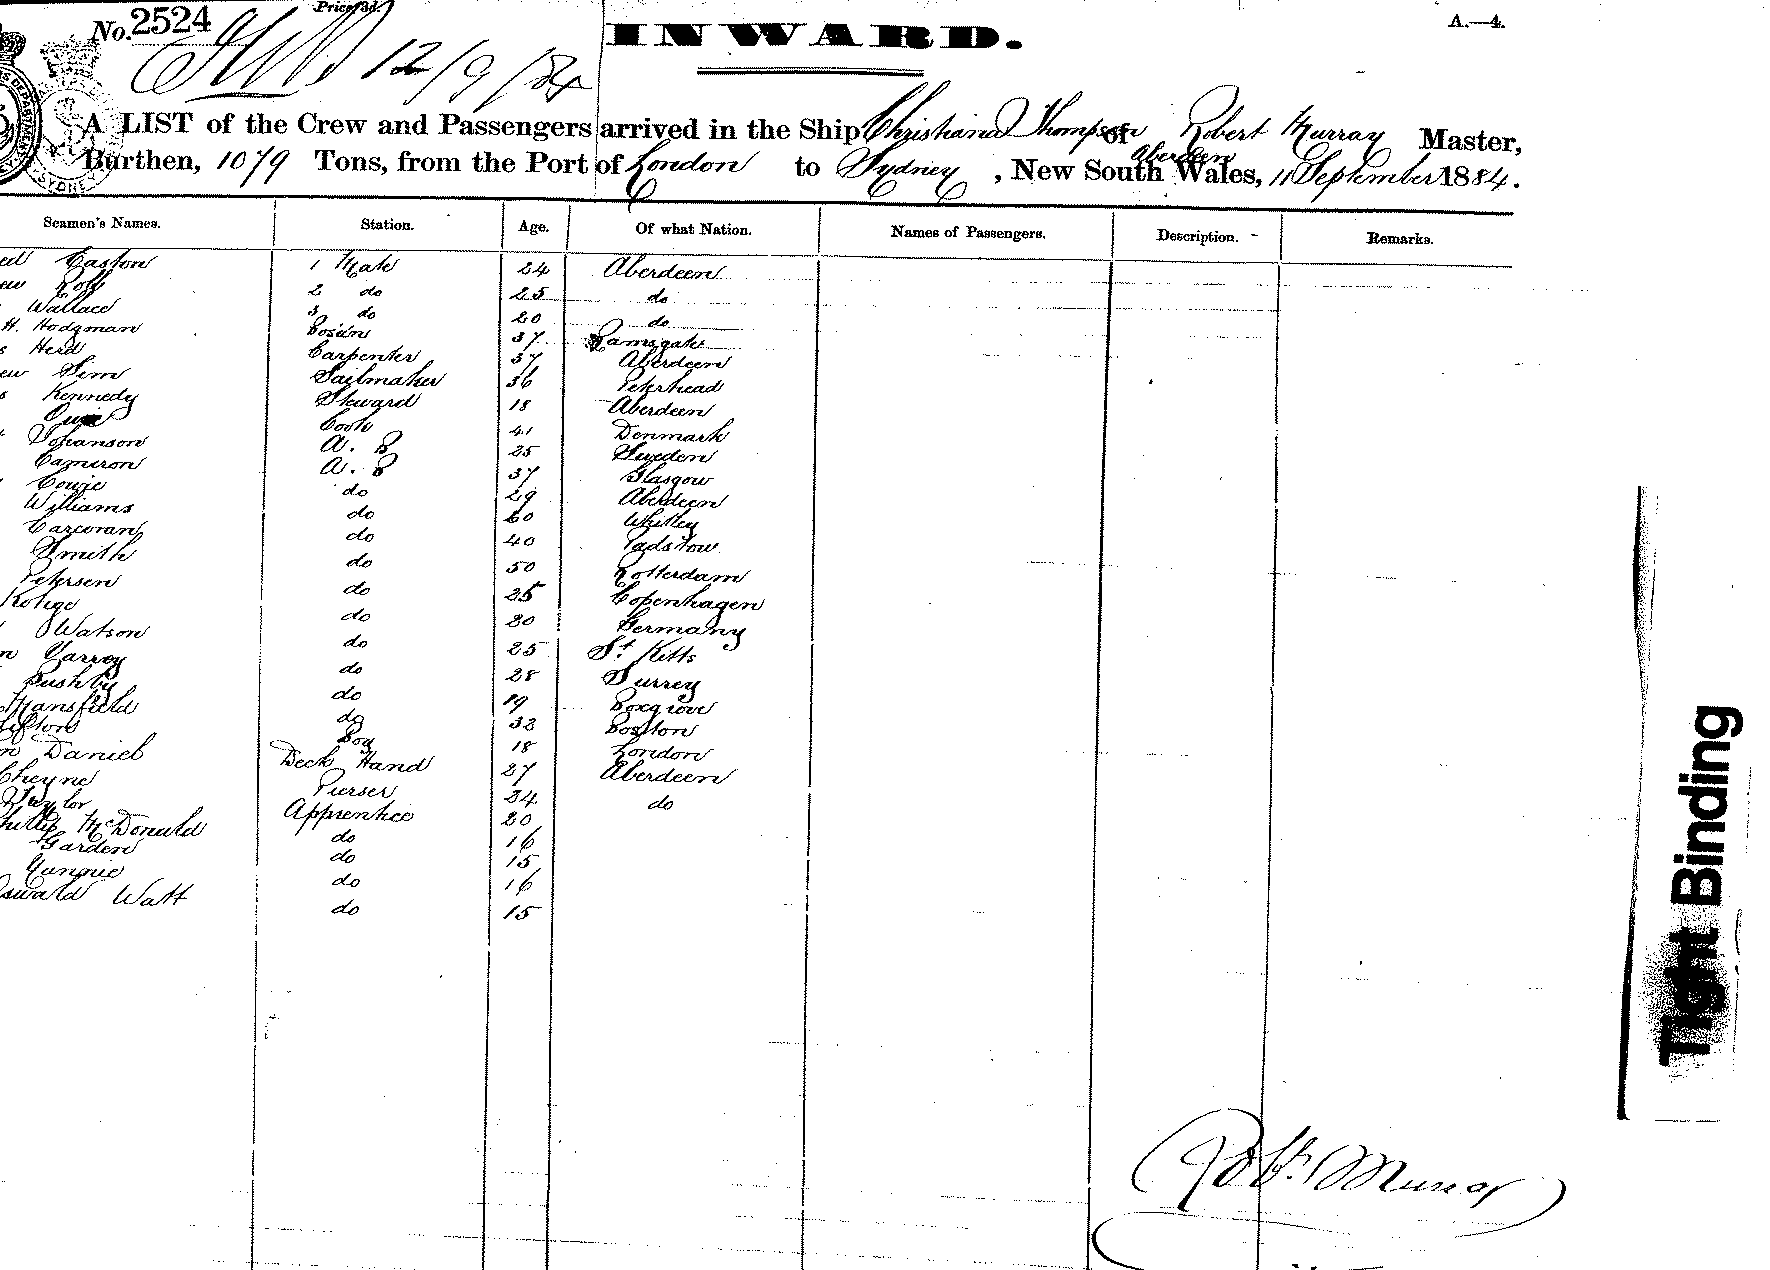 No. 2524
Price 3d.
12/9/84
INWARD.
A.—4.
A LIST of the Crew and Passengers arrived in the Ship Christiana Thompson of Robert Murray Master,
Aberdeen
Burthen, 1079 Tons, from the Port of London to Sydney, New South Wales, 11 September 1884.
Seamen's Names. Station. Age. Of what Nation. Names of Passengers. Description. Remarks.
Easton 1 Mate 24 Aberdeen
Robb 2 do 25 do
Wallace 3 do 20 do
H. Hodgman Bosdn 37 Ramsgate
Herd Carpenter 37 Aberdeen
Sim Sailmaker 36 Peterhead
Kennedy Steward 18 Aberdeen
Cook 41 Denmark
Johanson A. B 25 Sweden
Cameron A. B 37 Glasgow
Cowie do 29 Aberdeen
Williams do 60 Whitby
Carcoran do 40 Padstow
Smith do 50 Rotterdam
Petersen do 25 Copenhagen
do 20 Germany
Watson do 25 St Kitts
Yarrey do 28 Surrey
Bushby do 19 Boxgrove
Mansfield do 32 Boston
Boy 18 London
Daniel Deck Hand 27 Aberdeen
Cheyne Purser 24 do
Taylor Apprentice 20
McDonald do 16
Garden do 15
do 16
Watt do 15
Robt. Murray
Tight Binding